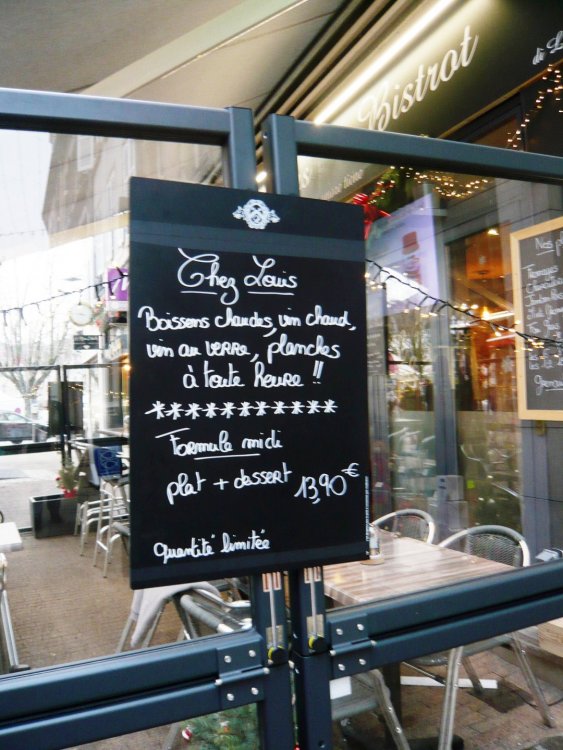 Bistrot
di L
Chez Louis
Boissons chaudes, vin chaud,
vin au verre, planches
à toute heure !!
***********
Formule midi
plat + dessert 13,90€
quantité limitée
Nos pl
Fromages